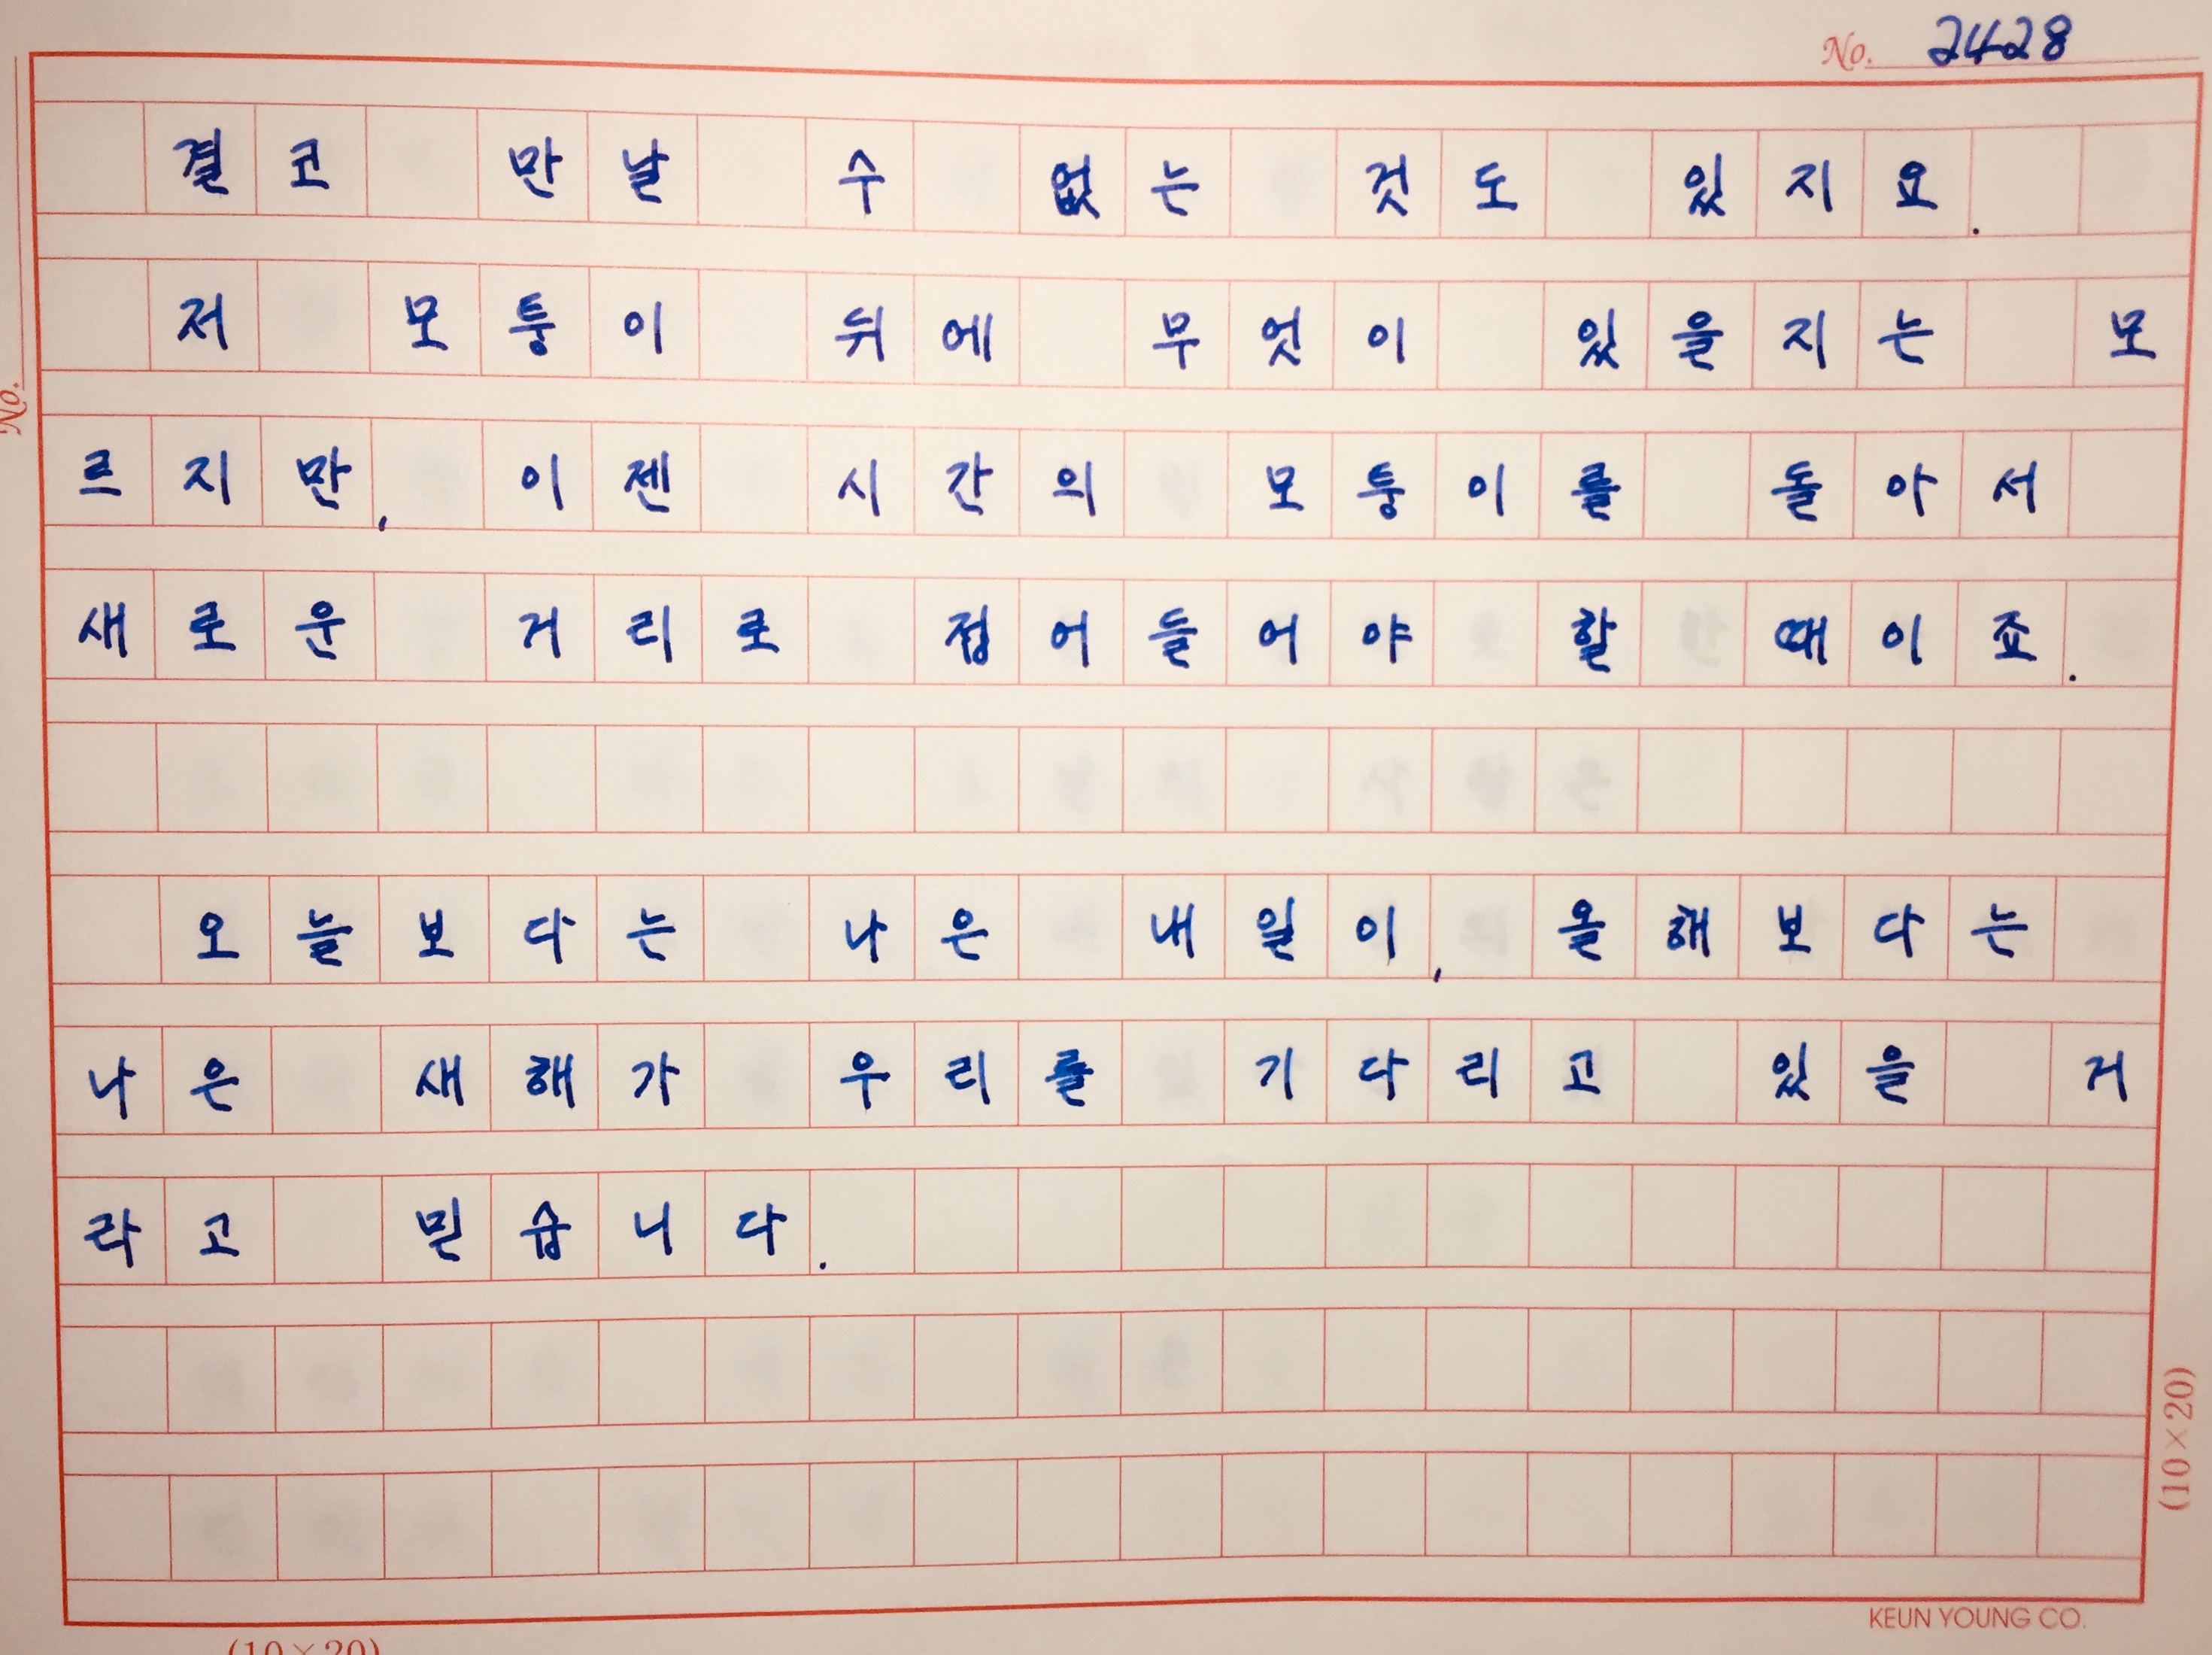 No. 2428
결코 만날 수 없는 것도 있지요.
저 모퉁이 뒤에 무엇이 있을지는 모
르지만, 이젠 시간의 모퉁이를 돌아서
새로운 거리로 접어들어야 할 때이죠.
오늘보다는 나은 내일이, 올해보다는
나은 새해가 우리를 기다리고 있을 거
라고 믿습니다.
No.
(10×20)
KEUN YOUNG CO.
(10×20)